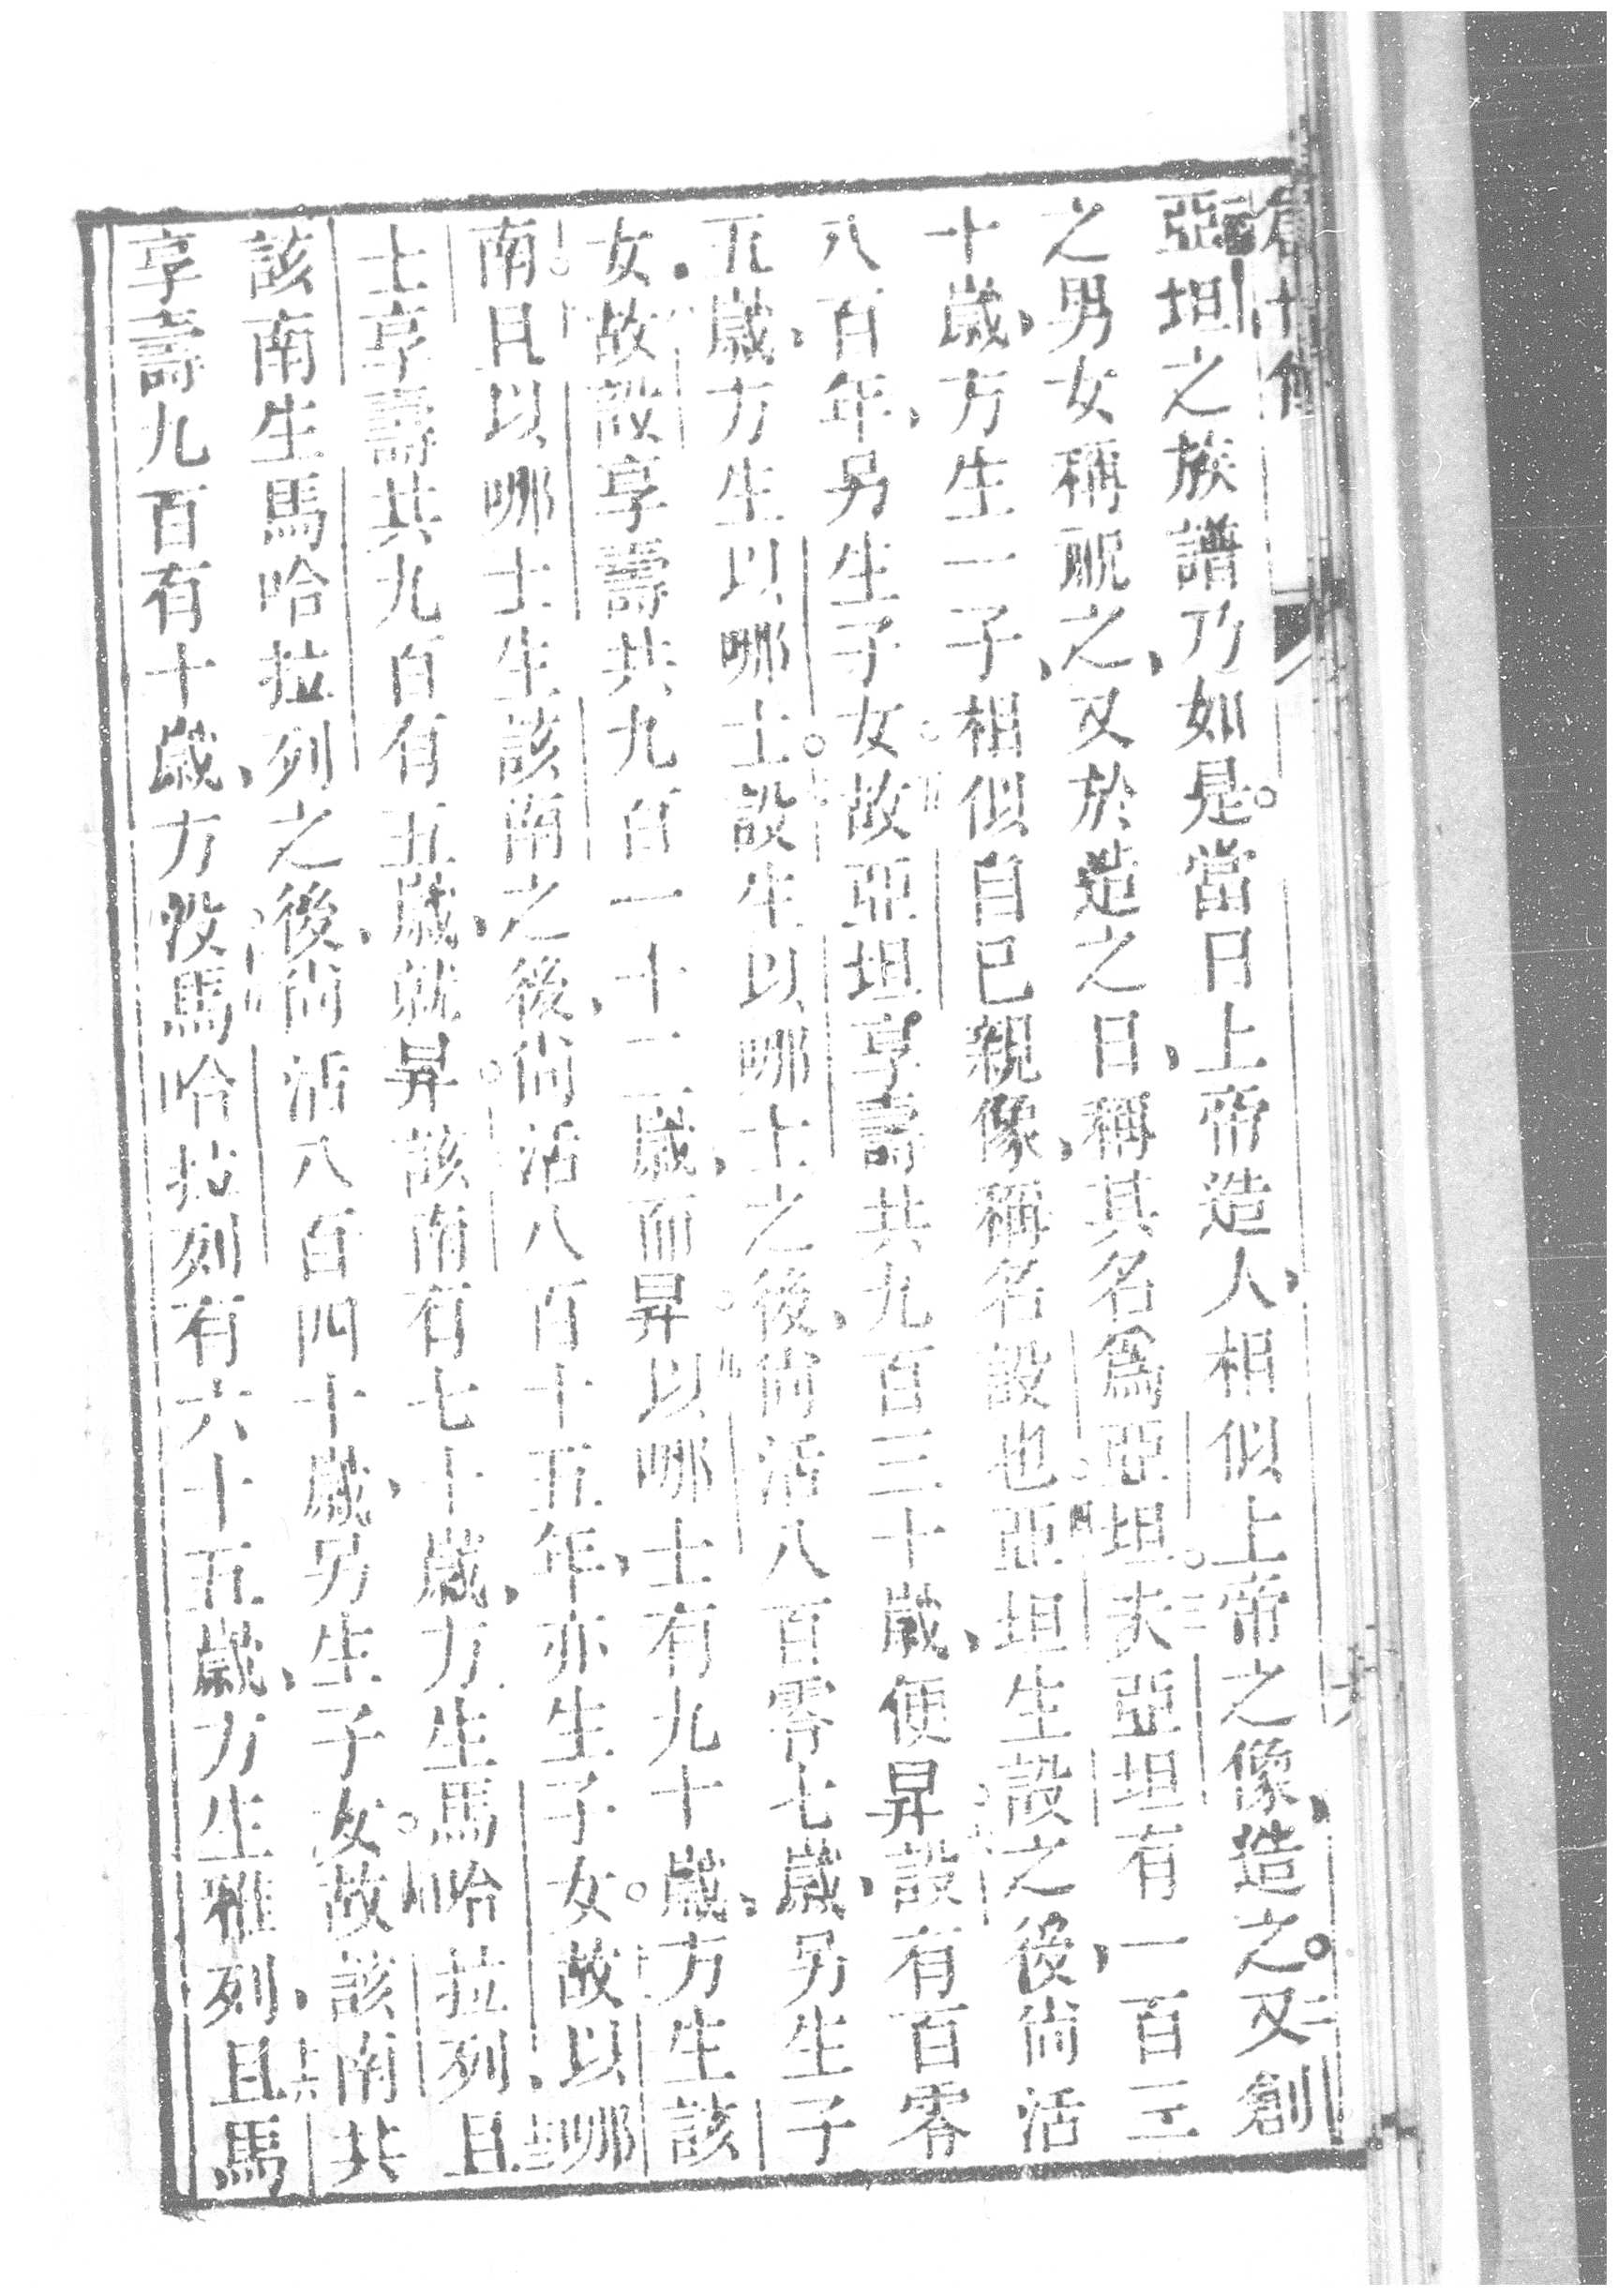 亞坦之族譜乃如是。當日上帝造人、相似上帝之像、造之。又創
之男女稱祝之、又於造之日、稱其名爲亞坦。夫亞坦有一百三
十歲、方生一子、相似自已親像、稱名設也。亞坦生設之後、尙活
八百年、另生子女。故亞坦享壽共九百三十歲、便昇。設有百零
五歲、方生以哪士。設生以哪士之後、尙活八百零七歲、另生子
女、故設享壽共九百一十二歲、而昇。以哪士有九十歲、方生該
南。且以哪士生該南之後、尙活八百十五年、亦生子女。故以哪
士享壽共九百有五歲、就昇。該南有七十歲、方生馬哈拉列、且
該南生馬哈拉列之後、尙活八百四十歲、另生子女。故該南共
享壽九百有十歲、方歿。馬哈拉列有六十五歲、方生雅列、且馬